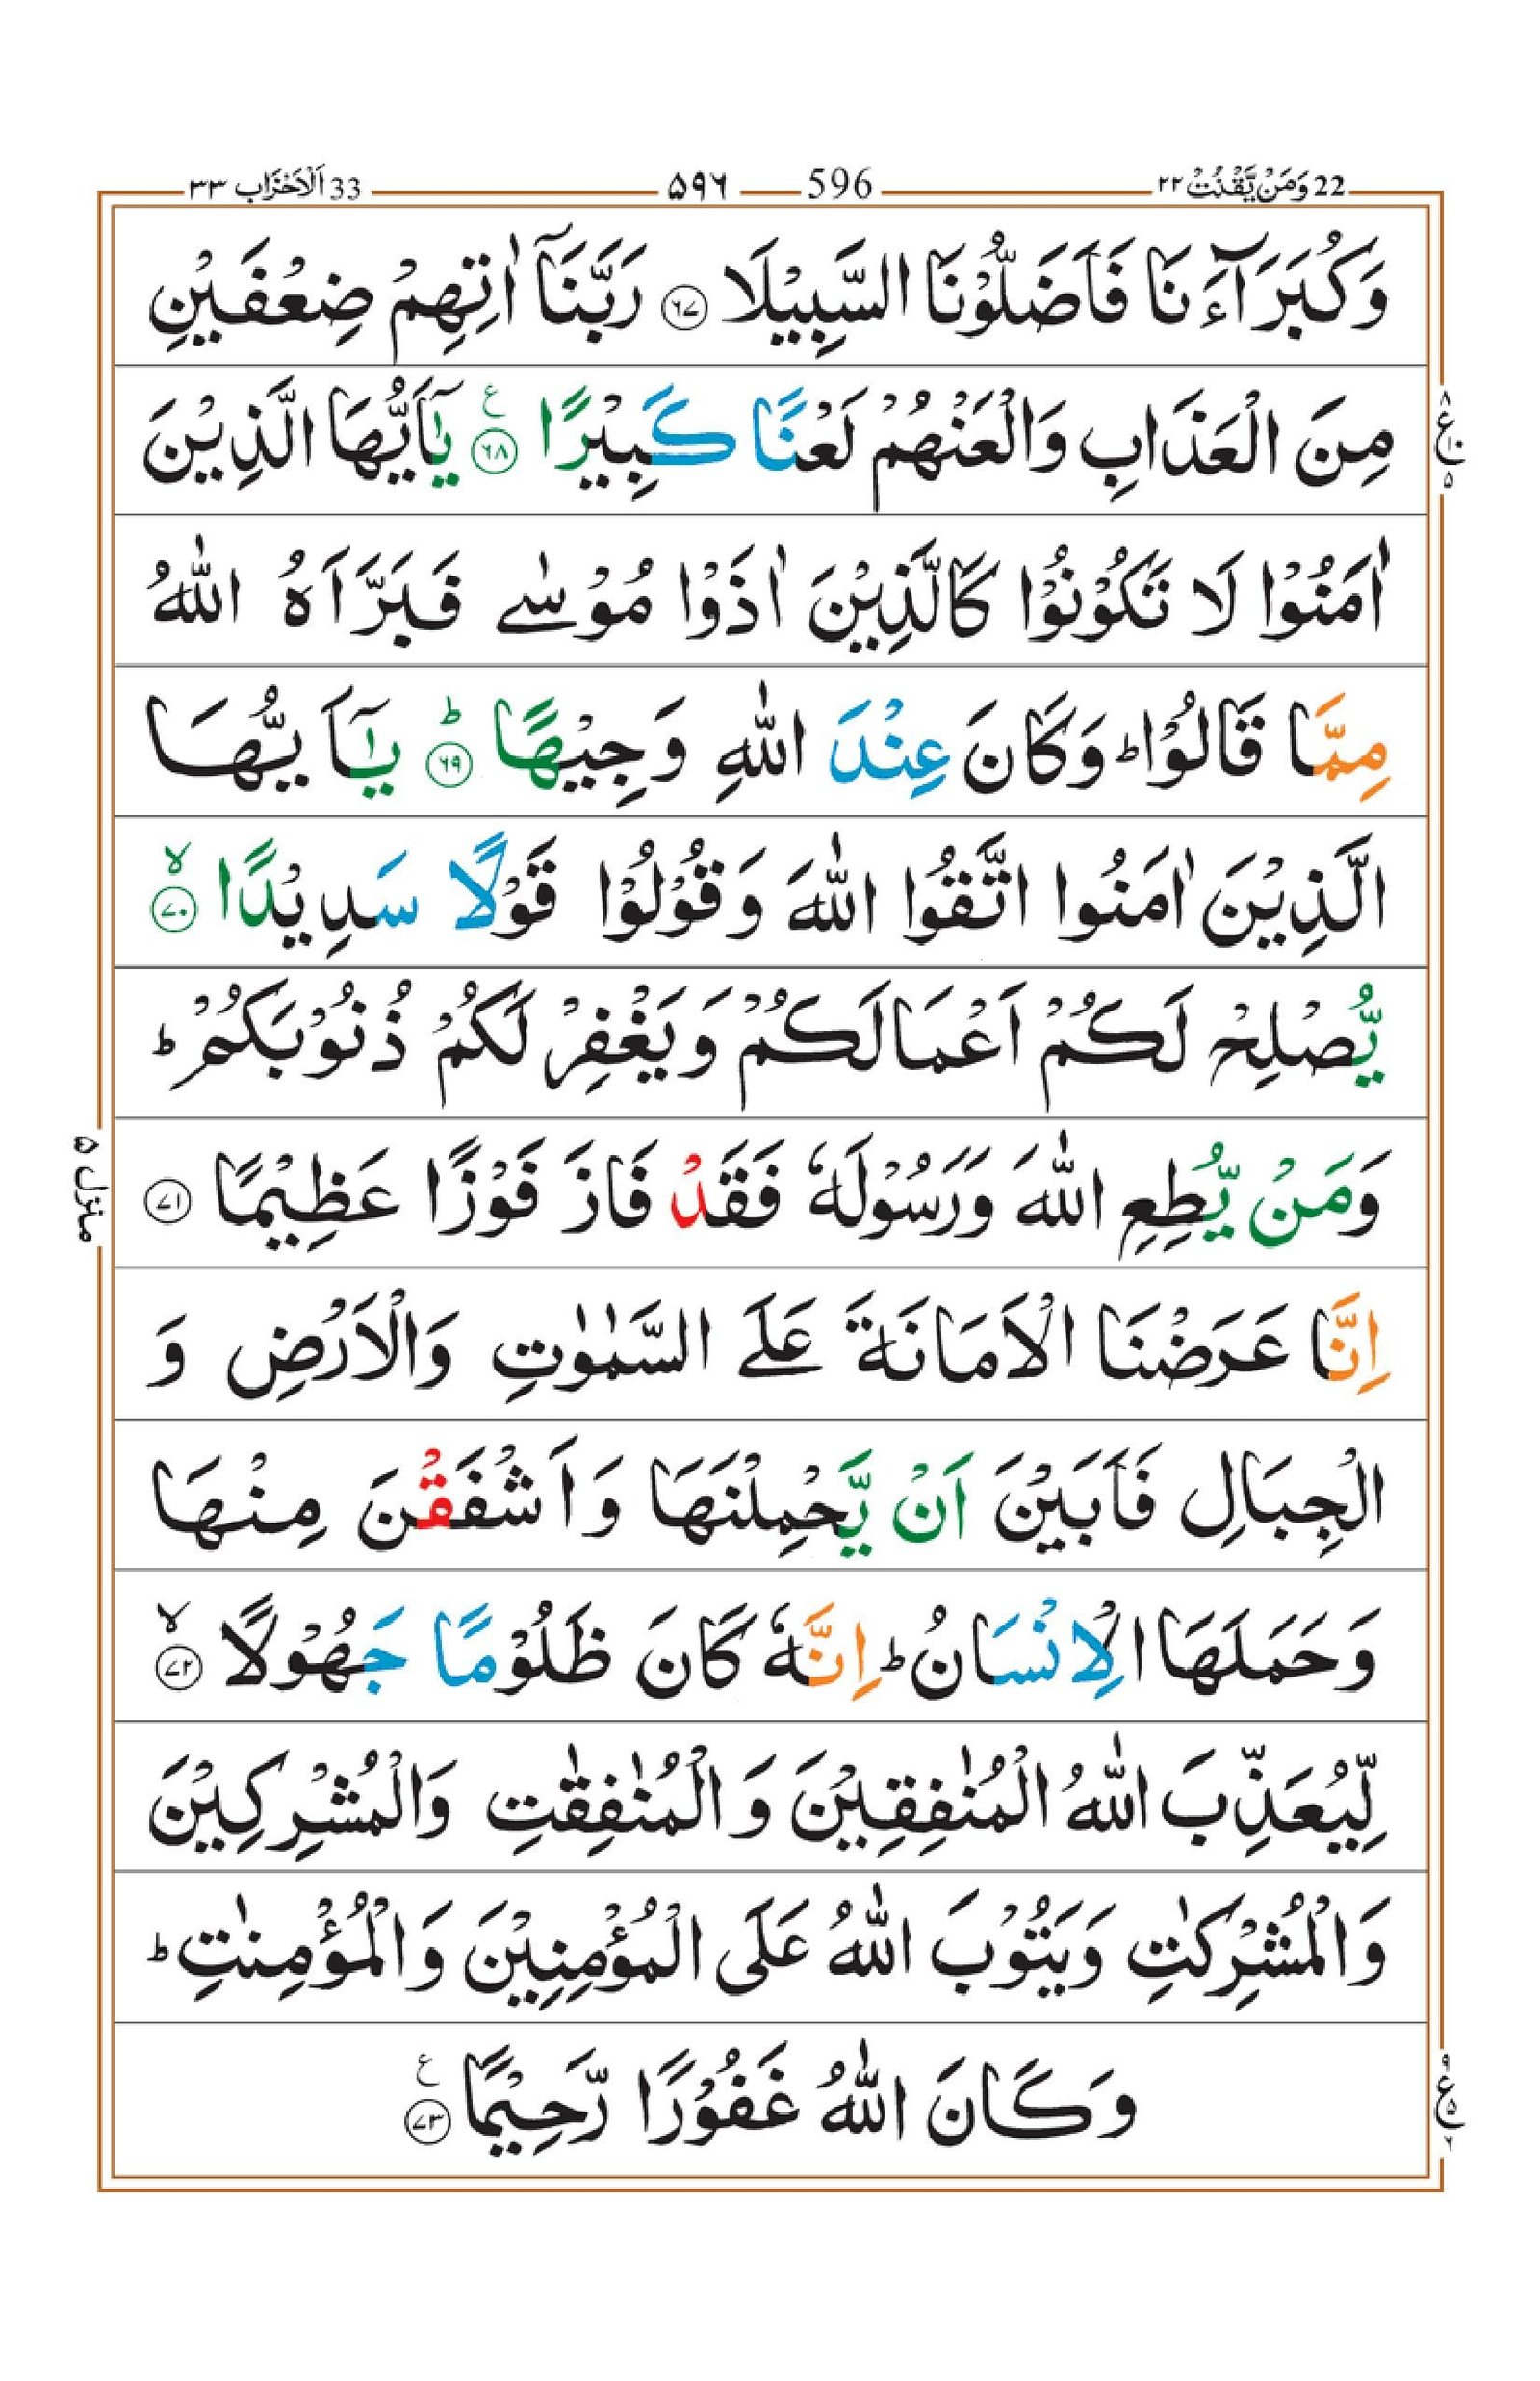 22 وَمَنْ يَّقْنُتْ ٢٢ 596 ۵۹۶ 33 اَلْاَحْزَاب ٣٣
وَكُبَرَآءَنَا فَاَضَلُّوْنَا السَّبِيْلَا ۶۷ رَبَّنَآ اٰتِهِمْ ضِعْفَيْنِ
مِنَ الْعَذَابِ وَالْعَنْهُمْ لَعْنًا كَبِيْرًا ع ۶۸ يٰۤاَيُّهَا الَّذِيْنَ
اٰمَنُوْا لَا تَكُوْنُوْا كَالَّذِيْنَ اٰذَوْا مُوْسٰى فَبَرَّاَهُ اللّٰهُ
مِمَّا قَالُوْا ؕ وَكَانَ عِنْدَ اللّٰهِ وَجِيْهًا ؕ ۶۹ يٰۤاَيُّهَا
الَّذِيْنَ اٰمَنُوا اتَّقُوا اللّٰهَ وَقُوْلُوْا قَوْلًا سَدِيْدًا ۙ ۷۰
يُّصْلِحْ لَكُمْ اَعْمَالَكُمْ وَيَغْفِرْ لَكُمْ ذُنُوْبَكُمْ ؕ
وَمَنْ يُّطِعِ اللّٰهَ وَرَسُوْلَهٗ فَقَدْ فَازَ فَوْزًا عَظِيْمًا ۷۱
اِنَّا عَرَضْنَا الْاَمَانَةَ عَلَى السَّمٰوٰتِ وَالْاَرْضِ وَ
الْجِبَالِ فَاَبَيْنَ اَنْ يَّحْمِلْنَهَا وَاَشْفَقْنَ مِنْهَا
وَحَمَلَهَا الْاِنْسَانُ ؕ اِنَّهٗ كَانَ ظَلُوْمًا جَهُوْلًا ۙ ۷۲
لِّيُعَذِّبَ اللّٰهُ الْمُنٰفِقِيْنَ وَالْمُنٰفِقٰتِ وَالْمُشْرِكِيْنَ
وَالْمُشْرِكٰتِ وَيَتُوْبَ اللّٰهُ عَلَى الْمُؤْمِنِيْنَ وَالْمُؤْمِنٰتِ ؕ
وَكَانَ اللّٰهُ غَفُوْرًا رَّحِيْمًا ع ۷۳
منزل ۵